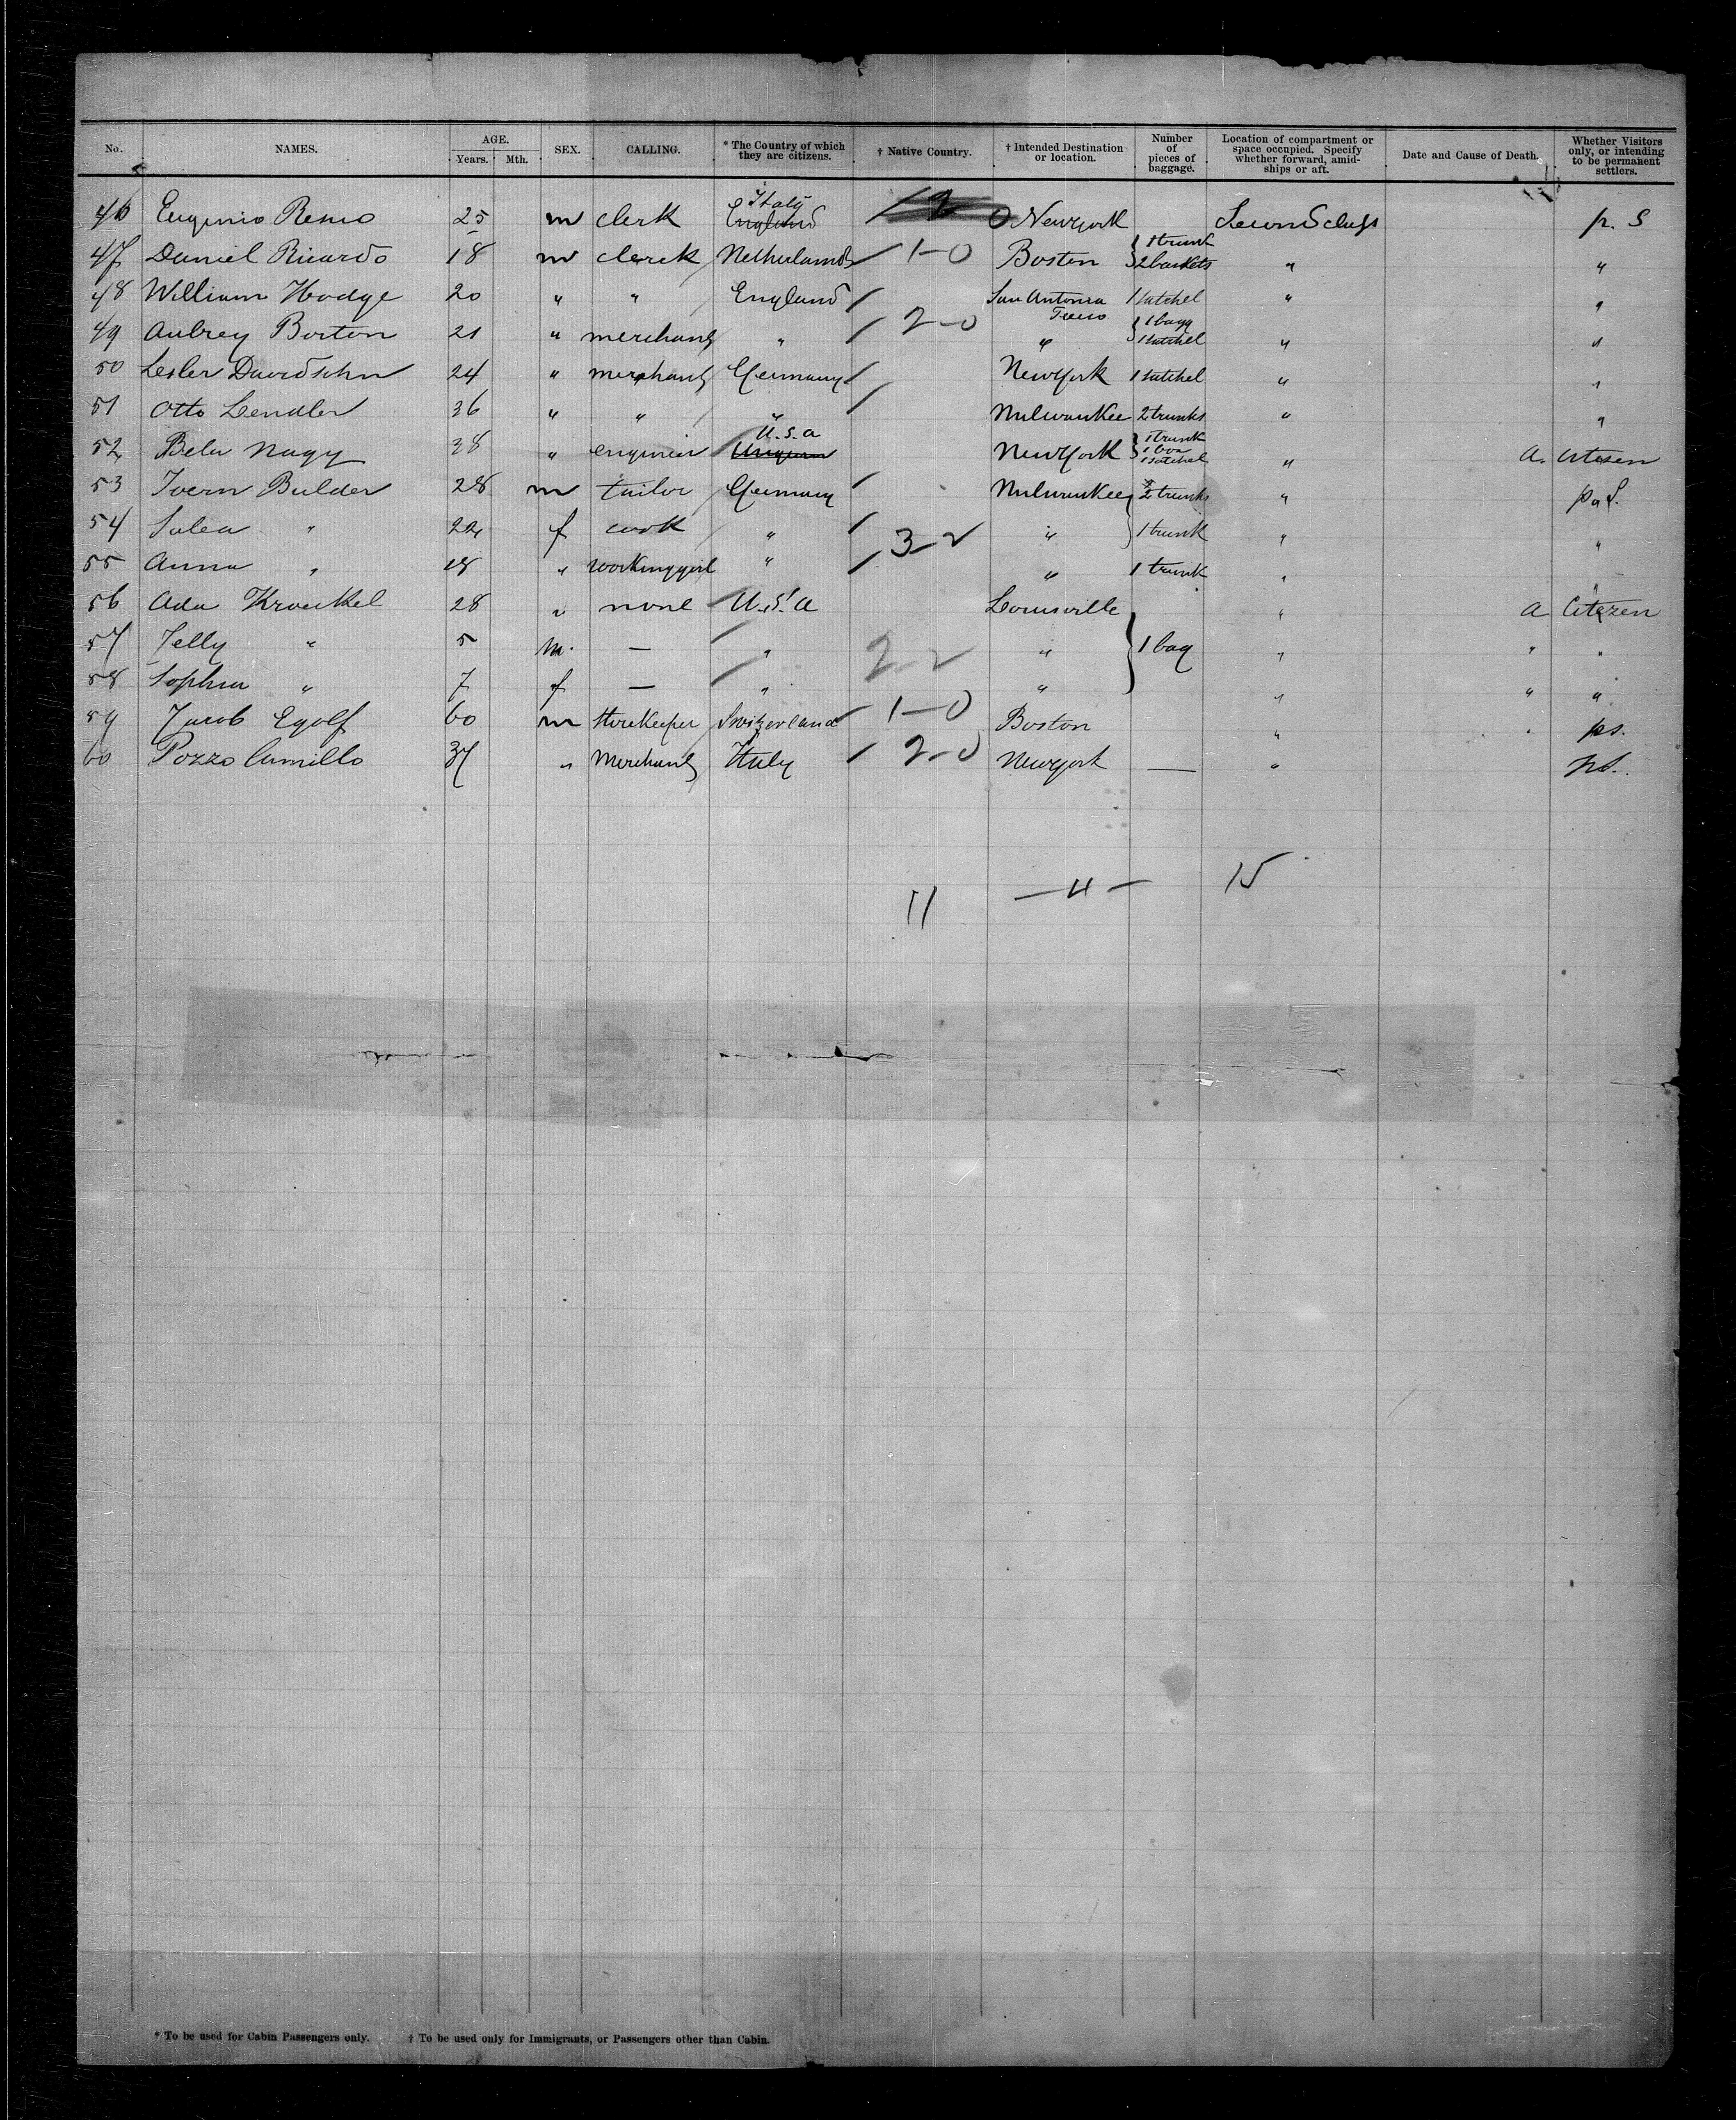 No. NAMES. AGE. Years. Mth. SEX. CALLING. * The Country of which they are citizens. † Native Country. † Intended Destination or location. Number of pieces of baggage. Location of compartment or space occupied. Specify whether forward, amid-ships or aft. Date and Cause of Death. Whether Visitors only, or intending to be permanent settlers.
46 Eugenio Remo 25 m clerk Italy England 2 0 New york Second Class p. S
47 Daniel Ricardo 18 m clerck Netherlands 1-0 Boston 1 trunk 2 baskets " "
48 William Hodge 20 " " England San Antonia Texas 1 satchel " "
49 Aubrey Borton 21 " merchant " 2-0 " 1 bagg 1 satchel " "
50 Davidsohn 24 " merchant Germany New York 1 satchel " "
51 Otto Lendler 36 " " " Milwaukee 2 trunks " "
52 Bela Nagy 38 " engineer U.S.a New York 1 trunk 1 box 1 satchel " a. citizen
53 Bulder 28 m tailor Germany Milwaukee 2 trunks " p. S.
54 " 22 f cook " 3-2 " 1 trunk " "
55 Anna " 18 " workinggirl " " 1 trunk " "
56 Ada Kroeckel 28 " none U.S.a Louisville " a Citizen
57 " 5 m. — " 2 2 " 1 bag " " "
58 Sophia " 7 f — " " " " "
59 Jacob Egolf 60 m storekeeper Switzerland 1-0 Boston " ps.
60 Pozzo Camillo 37 " Merchant Italy 2-0 New york — " ps.
11 — 4 — 15
* To be used for Cabin Passengers only. † To be used only for Immigrants, or Passengers other than Cabin.